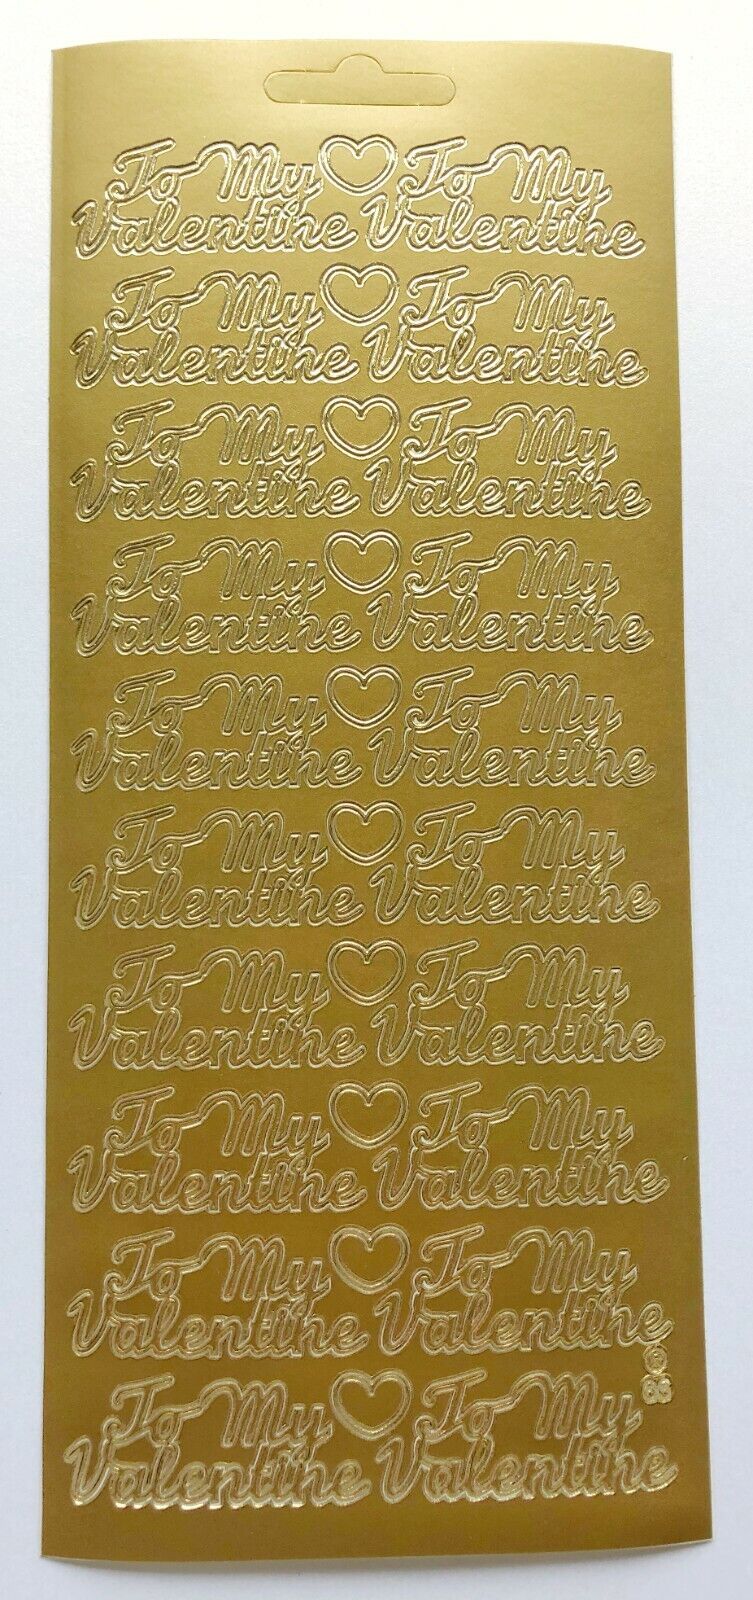 To My To My
Valentine Valentine
To My To My
Valentine Valentine
To My To My
Valentine Valentine
To My To My
Valentine Valentine
To My To My
Valentine Valentine
To My To My
Valentine Valentine
To My To My
Valentine Valentine
To My To My
Valentine Valentine
To My To My
Valentine Valentine
®
To My To My
Valentine Valentine